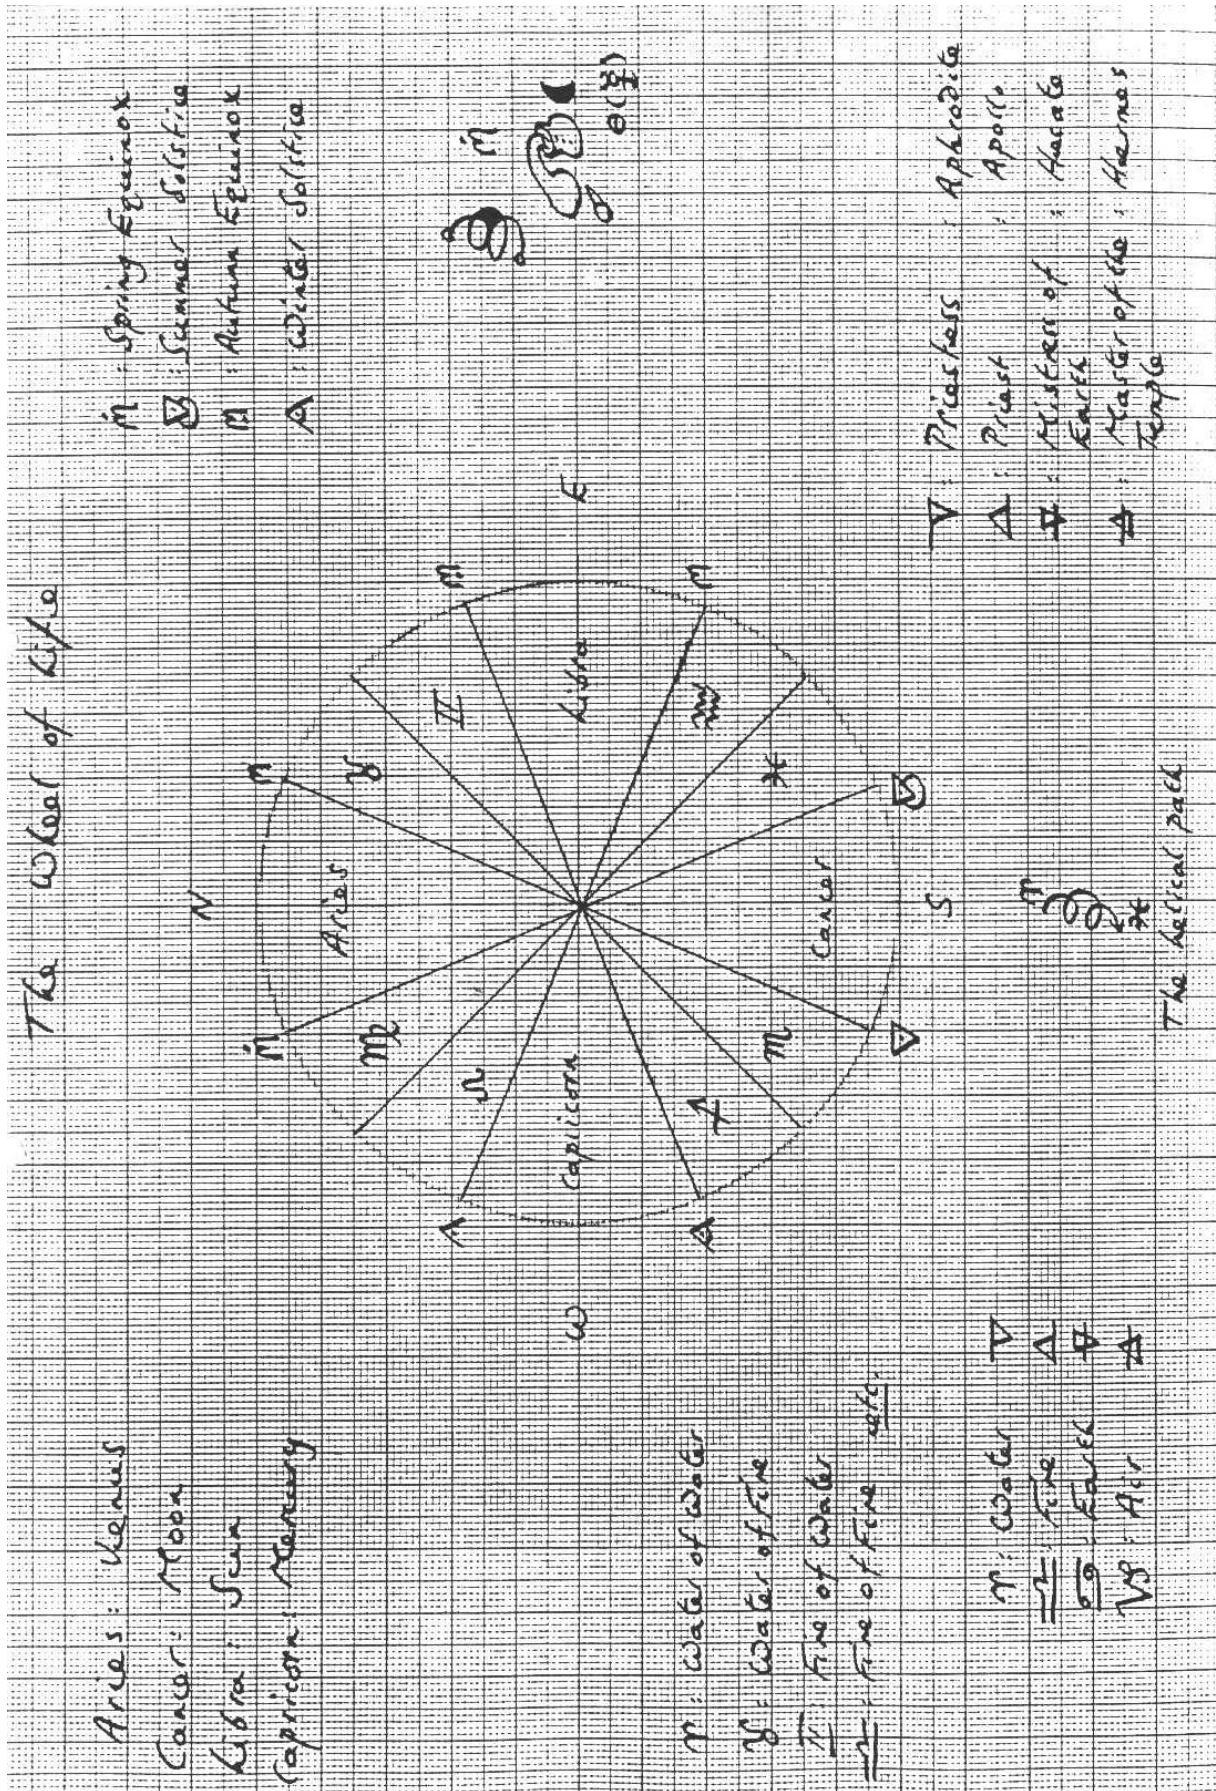 The Wheel of Life
Aries: Venus
Cancer: Moon
Libra: Sun
Capricorn: Mercury
ṁ: Spring Equinox
: Summer Solstice
m: Autumn Equinox
: Winter Solstice
ṁ
θ
N
ṁ
m
Aries
♍
♉
♌
♊
m
W
Capricorn
Libra
E
♐
♒
m
♏
♓
Cancer
▽
S
♈: Water of Water
♉: Water of Fire
♊: Fire of Water
♎: Fire of Fire etc.
♈: Water ▽
♎: Fire △
♋: Earth 🜃
♑: Air 🜁
♈
♓
The helical path
▽: Priestess : Aphrodite
△: Priest : Apollo
🜃: Mistress of Earth : Hecate
🜁: Master of the Temple : Hermes